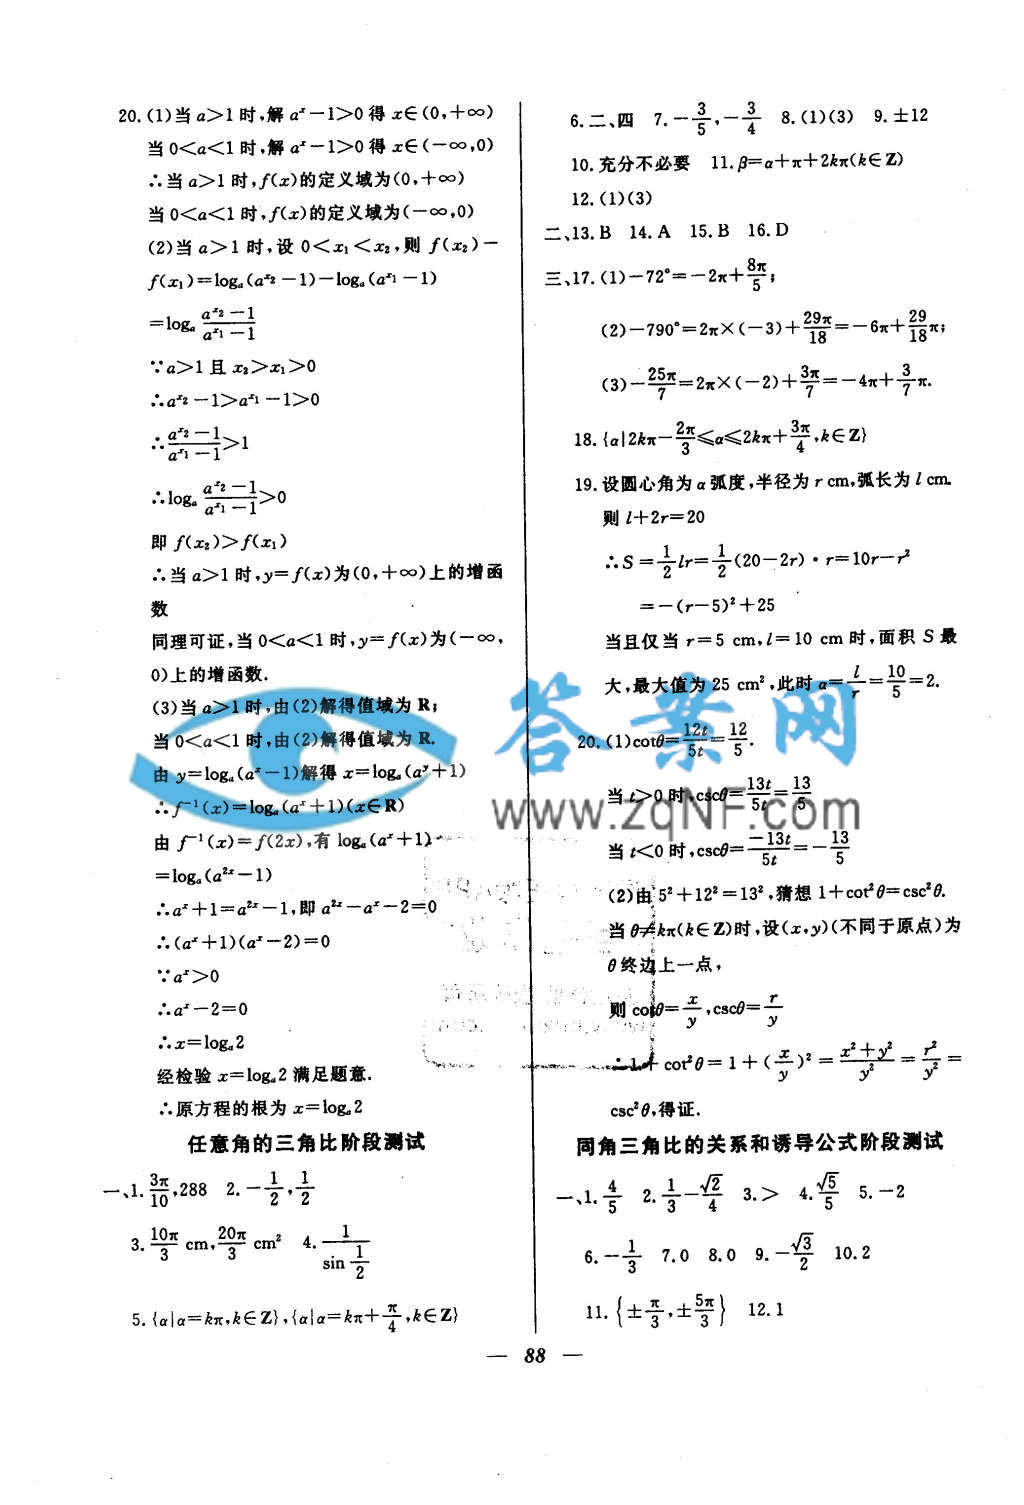 20.(1)当 a>1 时,解 aˣ－1>0 得 x∈(0,+∞)
当 0<a<1 时,解 aˣ－1>0 得 x∈(－∞,0)
∴当 a>1 时,f(x)的定义域为(0,+∞)
当 0<a<1 时,f(x)的定义域为(－∞,0)
(2)当 a>1 时,设 0<x₁<x₂,则 f(x₂)－
f(x₁)=logₐ(a^x₂－1)－logₐ(a^x₁－1)
=logₐ (a^x₂－1)/(a^x₁－1)
∵a>1 且 x₂>x₁>0
∴a^x₂－1>a^x₁－1>0
∴(a^x₂－1)/(a^x₁－1)>1
∴logₐ (a^x₂－1)/(a^x₁－1)>0
即 f(x₂)>f(x₁)
∴当 a>1 时,y=f(x)为(0,+∞)上的增函
数
同理可证,当 0<a<1 时,y=f(x)为(－∞,
0)上的增函数.
(3)当 a>1 时,由(2)解得值域为 R;
当 0<a<1 时,由(2)解得值域为 R.
由 y=logₐ(aˣ－1)解得 x=logₐ(aʸ+1)
∴f⁻¹(x)=logₐ(aˣ+1)(x∈R)
由 f⁻¹(x)=f(2x),有 logₐ(aˣ+1)
=logₐ(a²ˣ－1)
∴aˣ+1=a²ˣ－1,即 a²ˣ－aˣ－2=0
∴(aˣ+1)(aˣ－2)=0
∵aˣ>0
∴aˣ－2=0
∴x=logₐ2
经检验 x=logₐ2 满足题意.
∴原方程的根为 x=logₐ2
任意角的三角比阶段测试
一、1. 3π/10,288 2. －1/2,1/2
3. 10π/3 cm,20π/3 cm² 4. 1/(sin 1/2)
5.{α|α=kπ,k∈Z},{α|α=kπ+π/4,k∈Z}
6.二、四 7.－3/5,－3/4 8.(1)(3) 9.±12
10.充分不必要 11.β=α+π+2kπ(k∈Z)
12.(1)(3)
二、13.B 14.A 15.B 16.D
三、17.(1)－72°=－2π+8π/5;
(2)－790°=2π×(－3)+29π/18=－6π+29/18π;
(3)－25π/7=2π×(－2)+3π/7=－4π+3/7π.
18.{α|2kπ－2π/3≤α≤2kπ+3π/4,k∈Z}
19.设圆心角为 α 弧度,半径为 r cm,弧长为 l cm.
则 l+2r=20
∴S=1/2lr=1/2(20－2r)·r=10r－r²
=－(r－5)²+25
当且仅当 r=5 cm,l=10 cm 时,面积 S 最
大,最大值为 25 cm²,此时 α=l/r=10/5=2.
20.(1)cotθ=12t/5t=12/5.
当 t>0 时,cscθ=13t/5t=13/5
当 t<0 时,cscθ=－13t/5t=－13/5
(2)由 5²+12²=13²,猜想 1+cot²θ=csc²θ.
当 θ≠kπ(k∈Z)时,设(x,y)(不同于原点)为
θ 终边上一点,
则 cotθ=x/y,cscθ=r/y
∴1+cot²θ=1+(x/y)²=(x²+y²)/y²=r²/y²=
csc²θ,得证.
同角三角比的关系和诱导公式阶段测试
一、1. 4/5 2. 1/3－√2/4 3.> 4. √5/5 5.－2
6.－1/3 7.0 8.0 9.－√3/2 10.2
11.{±π/3,±5π/3} 12.1
答案网
www.zqNF.com
— 88 —